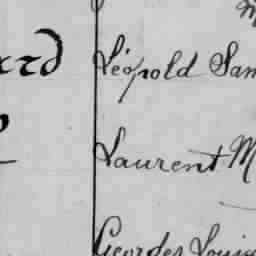 Léopold Sam
Laurent M
Georges Louis